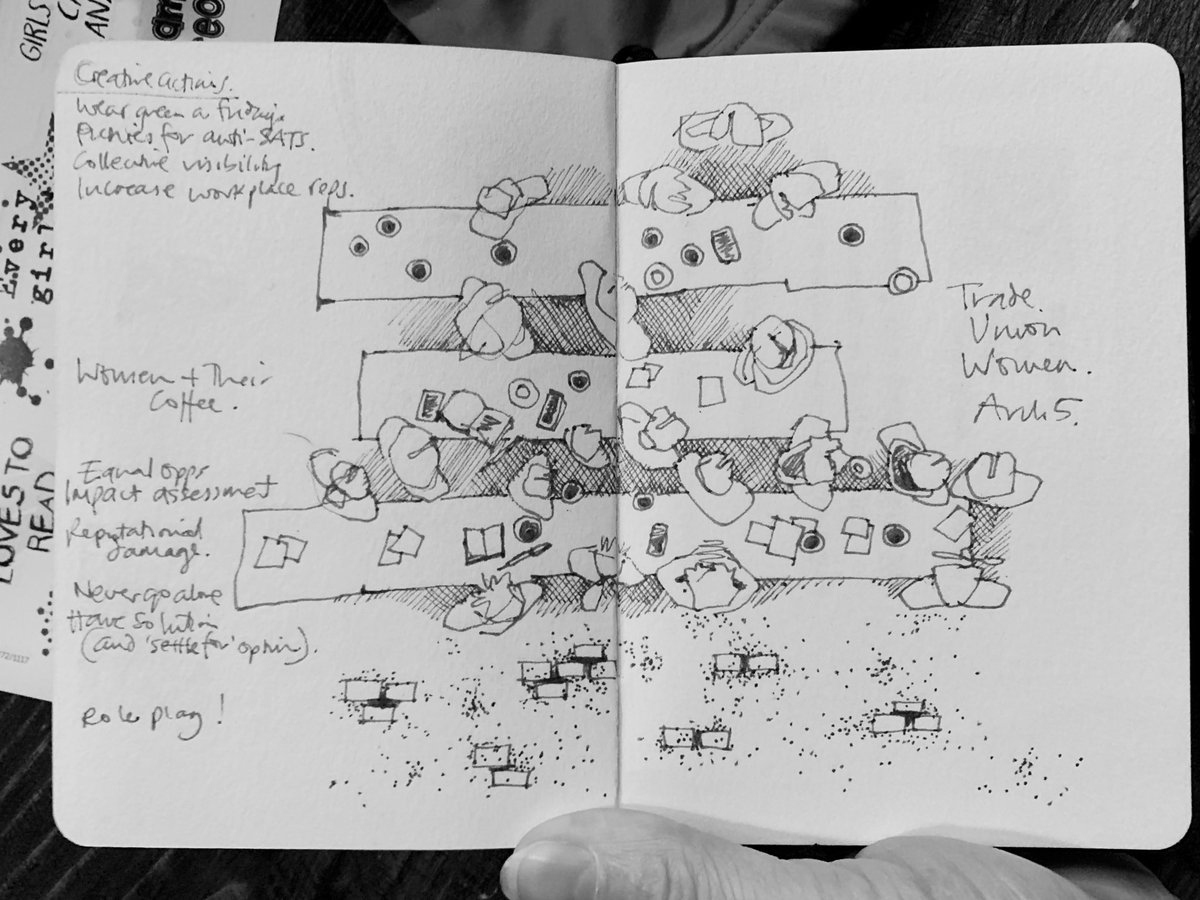 Creative actions.
Wear green on Fridays.
Picnics for anti-SATS.
Collective visibility
Increase workplace reps.
Women + Their
Coffee.
Equal opps
Impact assessment
Reputational
damage.
Never go alone
Have solution
(and 'settle for' option).
Role play!
Trade
Union
Women.
Arch 5.
GIRLS
Every
girl
LOVES TO
READ